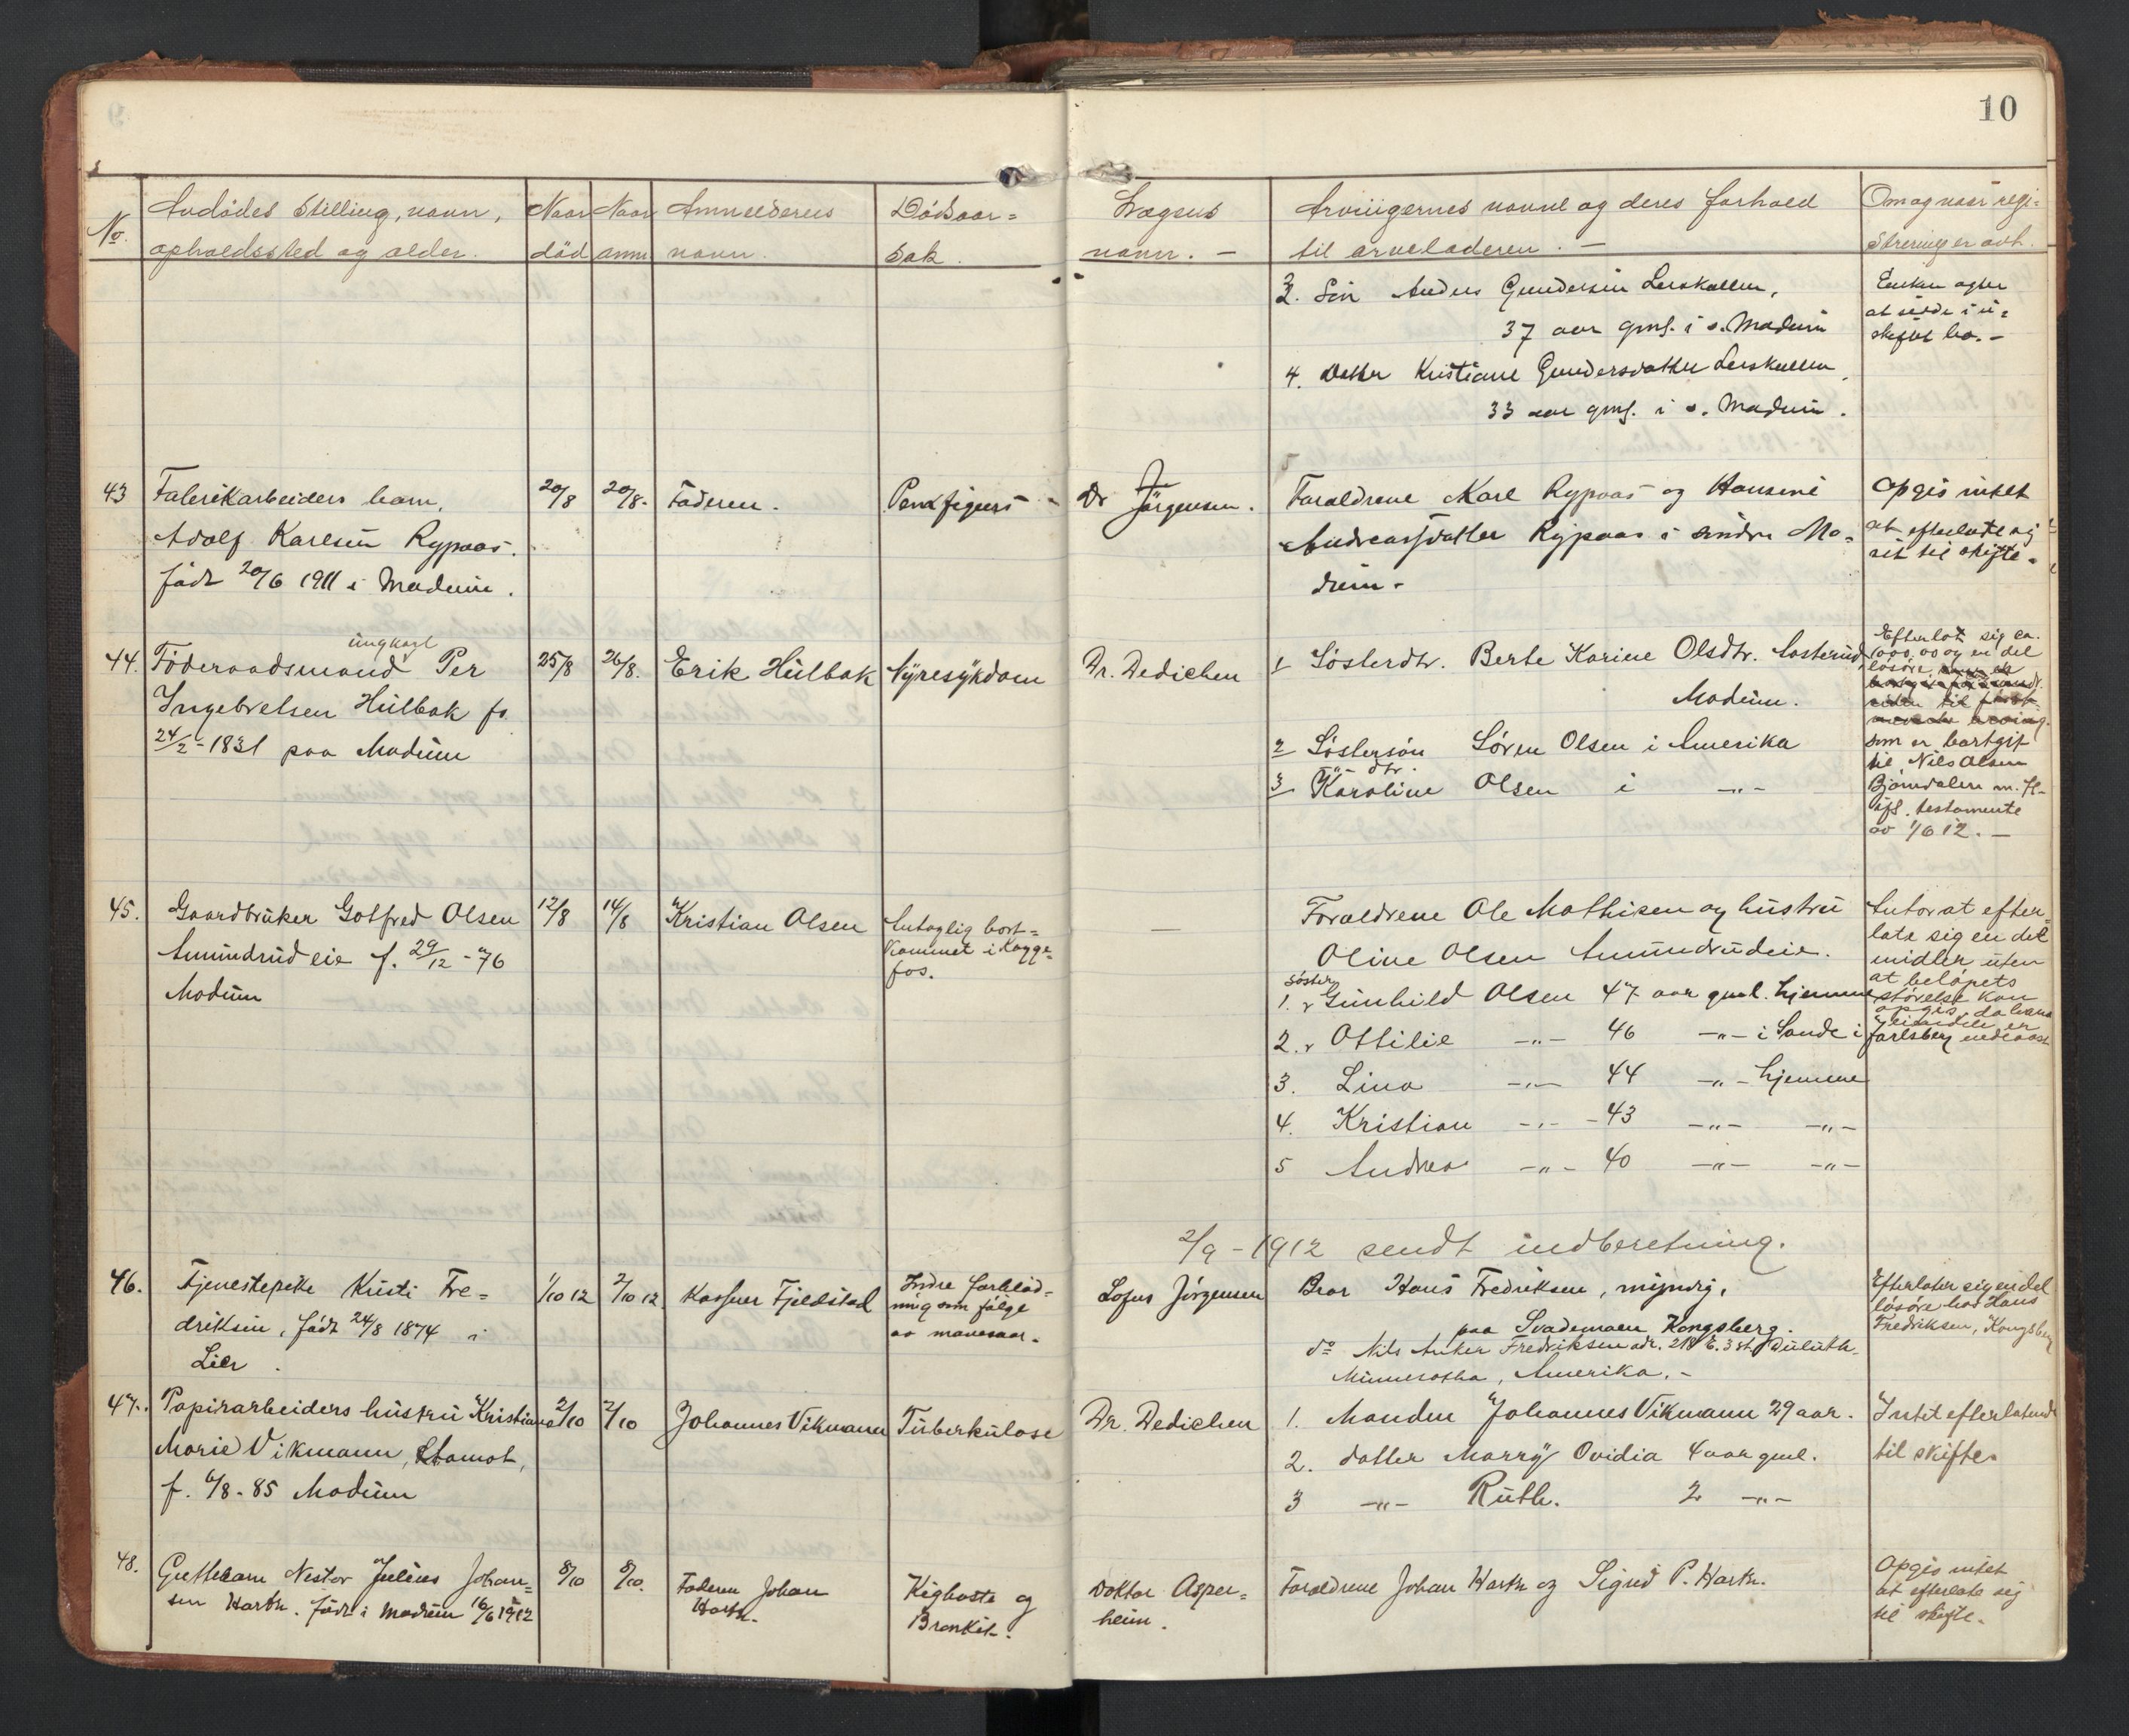 10
No.
Avdödes Stilling, navn,
opholdssted og alder.
Naar
död
Naar
anm
Anmelderens
navn.
Dödsaar=
sak.
Lægens
navn. -
Arvingernes navne og deres forhold
til arveladeren. -
Om og naar regi=
strering er avh.
3. Sön Anders Gundersen Lerskallen,
37 aar gml. i s. Modum
4. Datter Kristiane Gundersdatter Lerskallen,
33 aar gml. i s. Modum.
Enken agter
at sidde i u=
skiftet bo. -
43
Fabrikarbeiders barn,
Adolf Karlsen Rypaas.
född 20/6 1911 i Modum.
20/8
20/8.
Faderen.
Pemfigus
Dr Jörgensen.
Forældrene Karl Rypaas og Hansine
Andreasdatter Rypaas i söndre Mo=
dum -
Opgis intet
at efterlate sig
til skifte.
44.
ungkarl
Föderaadsmand Per
Ingebretsen Hulbak f.
24/2 - 1831 paa Modum
25/8
26/8.
Erik Hulbak
Nyresykdom
Dr. Dedichen
1 Sösterdtr. Berte Karine Olsdtr. Aasterud,
Modum.
2 Söstersön Sören Olsen i Amerika
3 -"- dtr.
Karoline Olsen i -"-
Efterlot sig ca.
1000,00 og en del
lösöre
som er bortgit
til Nils Olsen
Bjömdalen m. fl.
ifl. testamente
av 1/6 12. -
45.
Gaardbruker Gotfred Olsen
Amundrudeie f. 29/12 - 76
Modum
12/8
14/8
Kristian Olsen
Antagelig bort=
kommet i Kagge=
fos.
—
Forældrene Ole Mathisen og hustru
Oline Olsen Amundrudeie.
söster
1. " Gunhild Olsen 47 aar gml. hjemme
2. " Ottilie -"- 46 -"- i Sande i Jarlsberg
3. Lina -"- 44 -"- hjemme
4. Kristian -"- 43 -"- -"-
5 Andrea -"- 40 -"- -"-
Antar at efter=
late sig en del
midler uten
at belöpets
störelse kan
opgis, da hans
eiendele er
nedlaast
2/9 - 1912 sendt indberetning.
46.
Tjenestepike Kristi Fre=
driksen, född 24/8 1874 i
Lier.
1/10 12
2/10 12.
Kasper Fjeldstad
Indre forblöd=
ning som fölge
av mavesaar.
Lofus Jörgensen
Bror Hans Fredriksen, myndig,
paa Svademoen Kongsberg.
do Nils Anker Fredriksen adr. 218 E. 3 st. Duluth
Minnesotha, Amerika. -
Efterlater sig en del
lösöre hos Hans
Fredriksen, Kongsberg
47.
Papirarbeiders hustru Kristiane
Marie Vikmann, Aamot,
f. 6/8 - 85 Modum
2/10
2/10
Johannes Vikmann
Tuberkulose
Dr. Dedichen
1. Manden Johannes Vikmann 29 aar.
2. datter Marry Ovidia 4 aar gml.
3 -"- Ruth. 2 -"-
Intet efterlatende
til skifte.
48.
Guttebarn Nestor Julius Johan=
sen Hartz. född i Modum 16/6 1912
8/10
8/10.
Faderen Johan
Hartz.
Kighoste og
Bronkit.
Doktor Asper=
heim.
Forældrene Johan Hartz og Sigrid P. Hartz.
Opgis intet
at efterlate sig
til skifte.